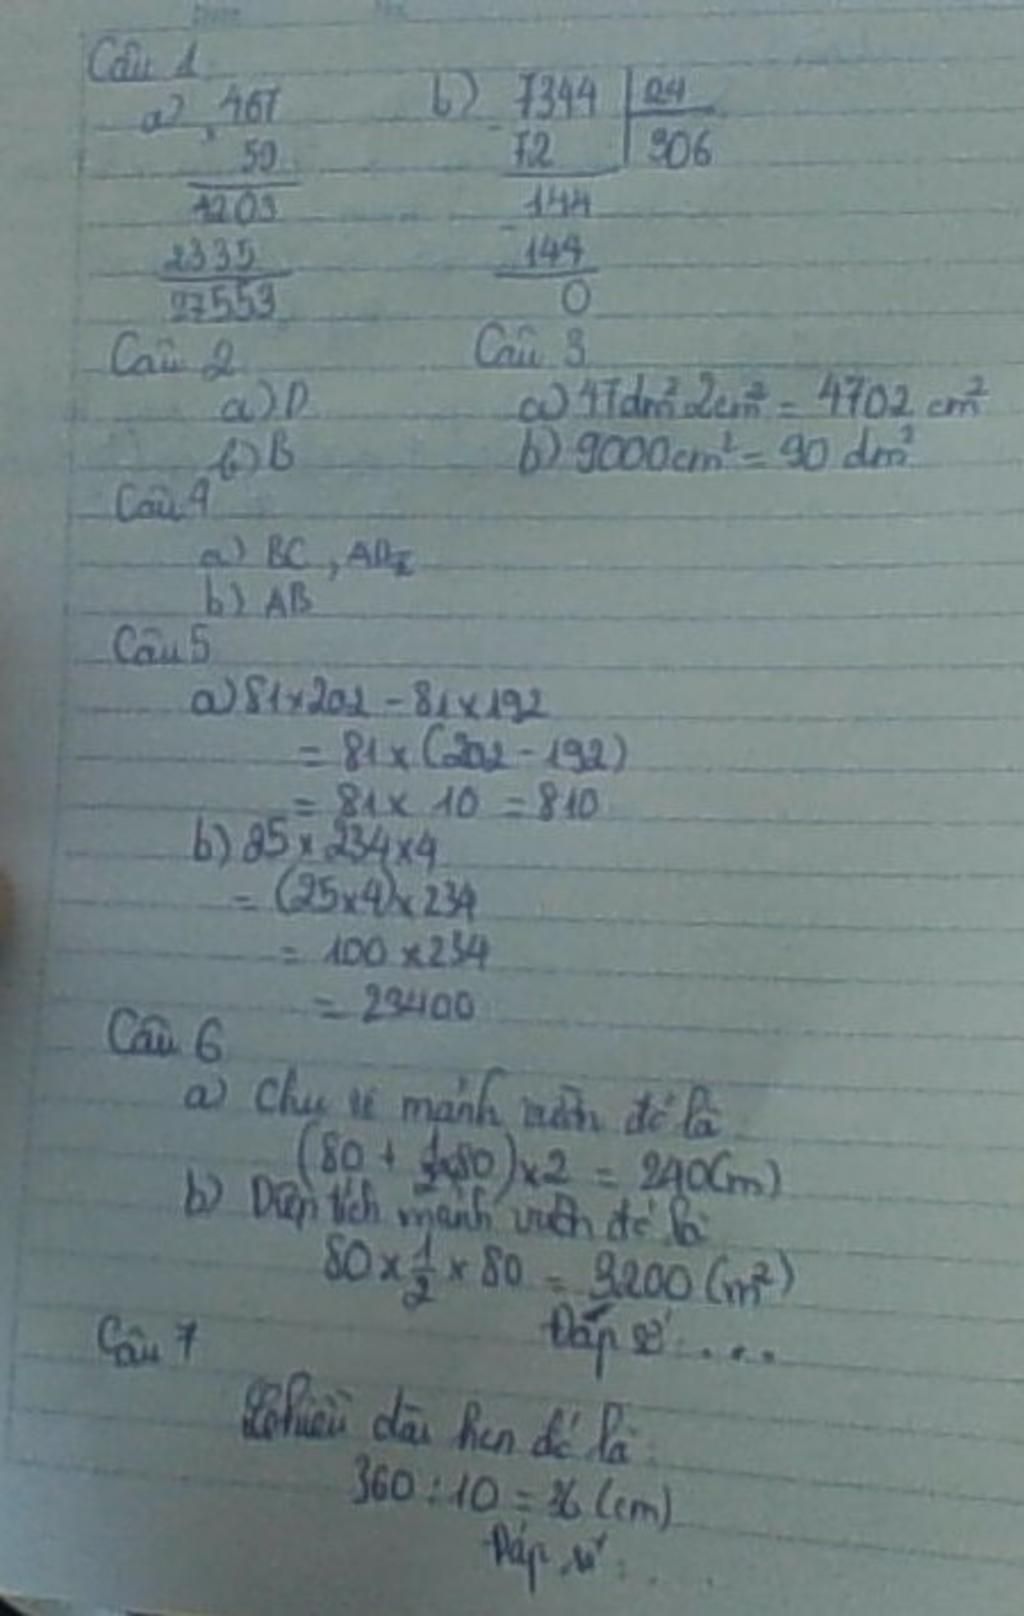 Câu 1
a) 467 b) 7344 | 24
× 59 - 72 306
4203 144
2335 - 144
27553 0
Câu 2 Câu 3
a) D a) 47dm² 2cm² = 4702 cm²
b) B b) 9000cm² = 90 dm²
Câu 4
a) BC, AD
b) AB
Câu 5
a) 81×202 - 81×192
= 81 × (202 - 192)
= 81 × 10 = 810
b) 25 × 234 × 4
= (25×4)×234
= 100 × 234
= 23400
Câu 6
a) Chu vi mảnh vườn đó là
(80 + ½×80)×2 = 240(m)
b) Diện tích mảnh vườn đó là
80 × ½ × 80 = 3200 (m²)
Đáp số : ....
Câu 7
Chiều dài hơn đó là:
360 : 10 = 36 (cm)
Đáp số : ....